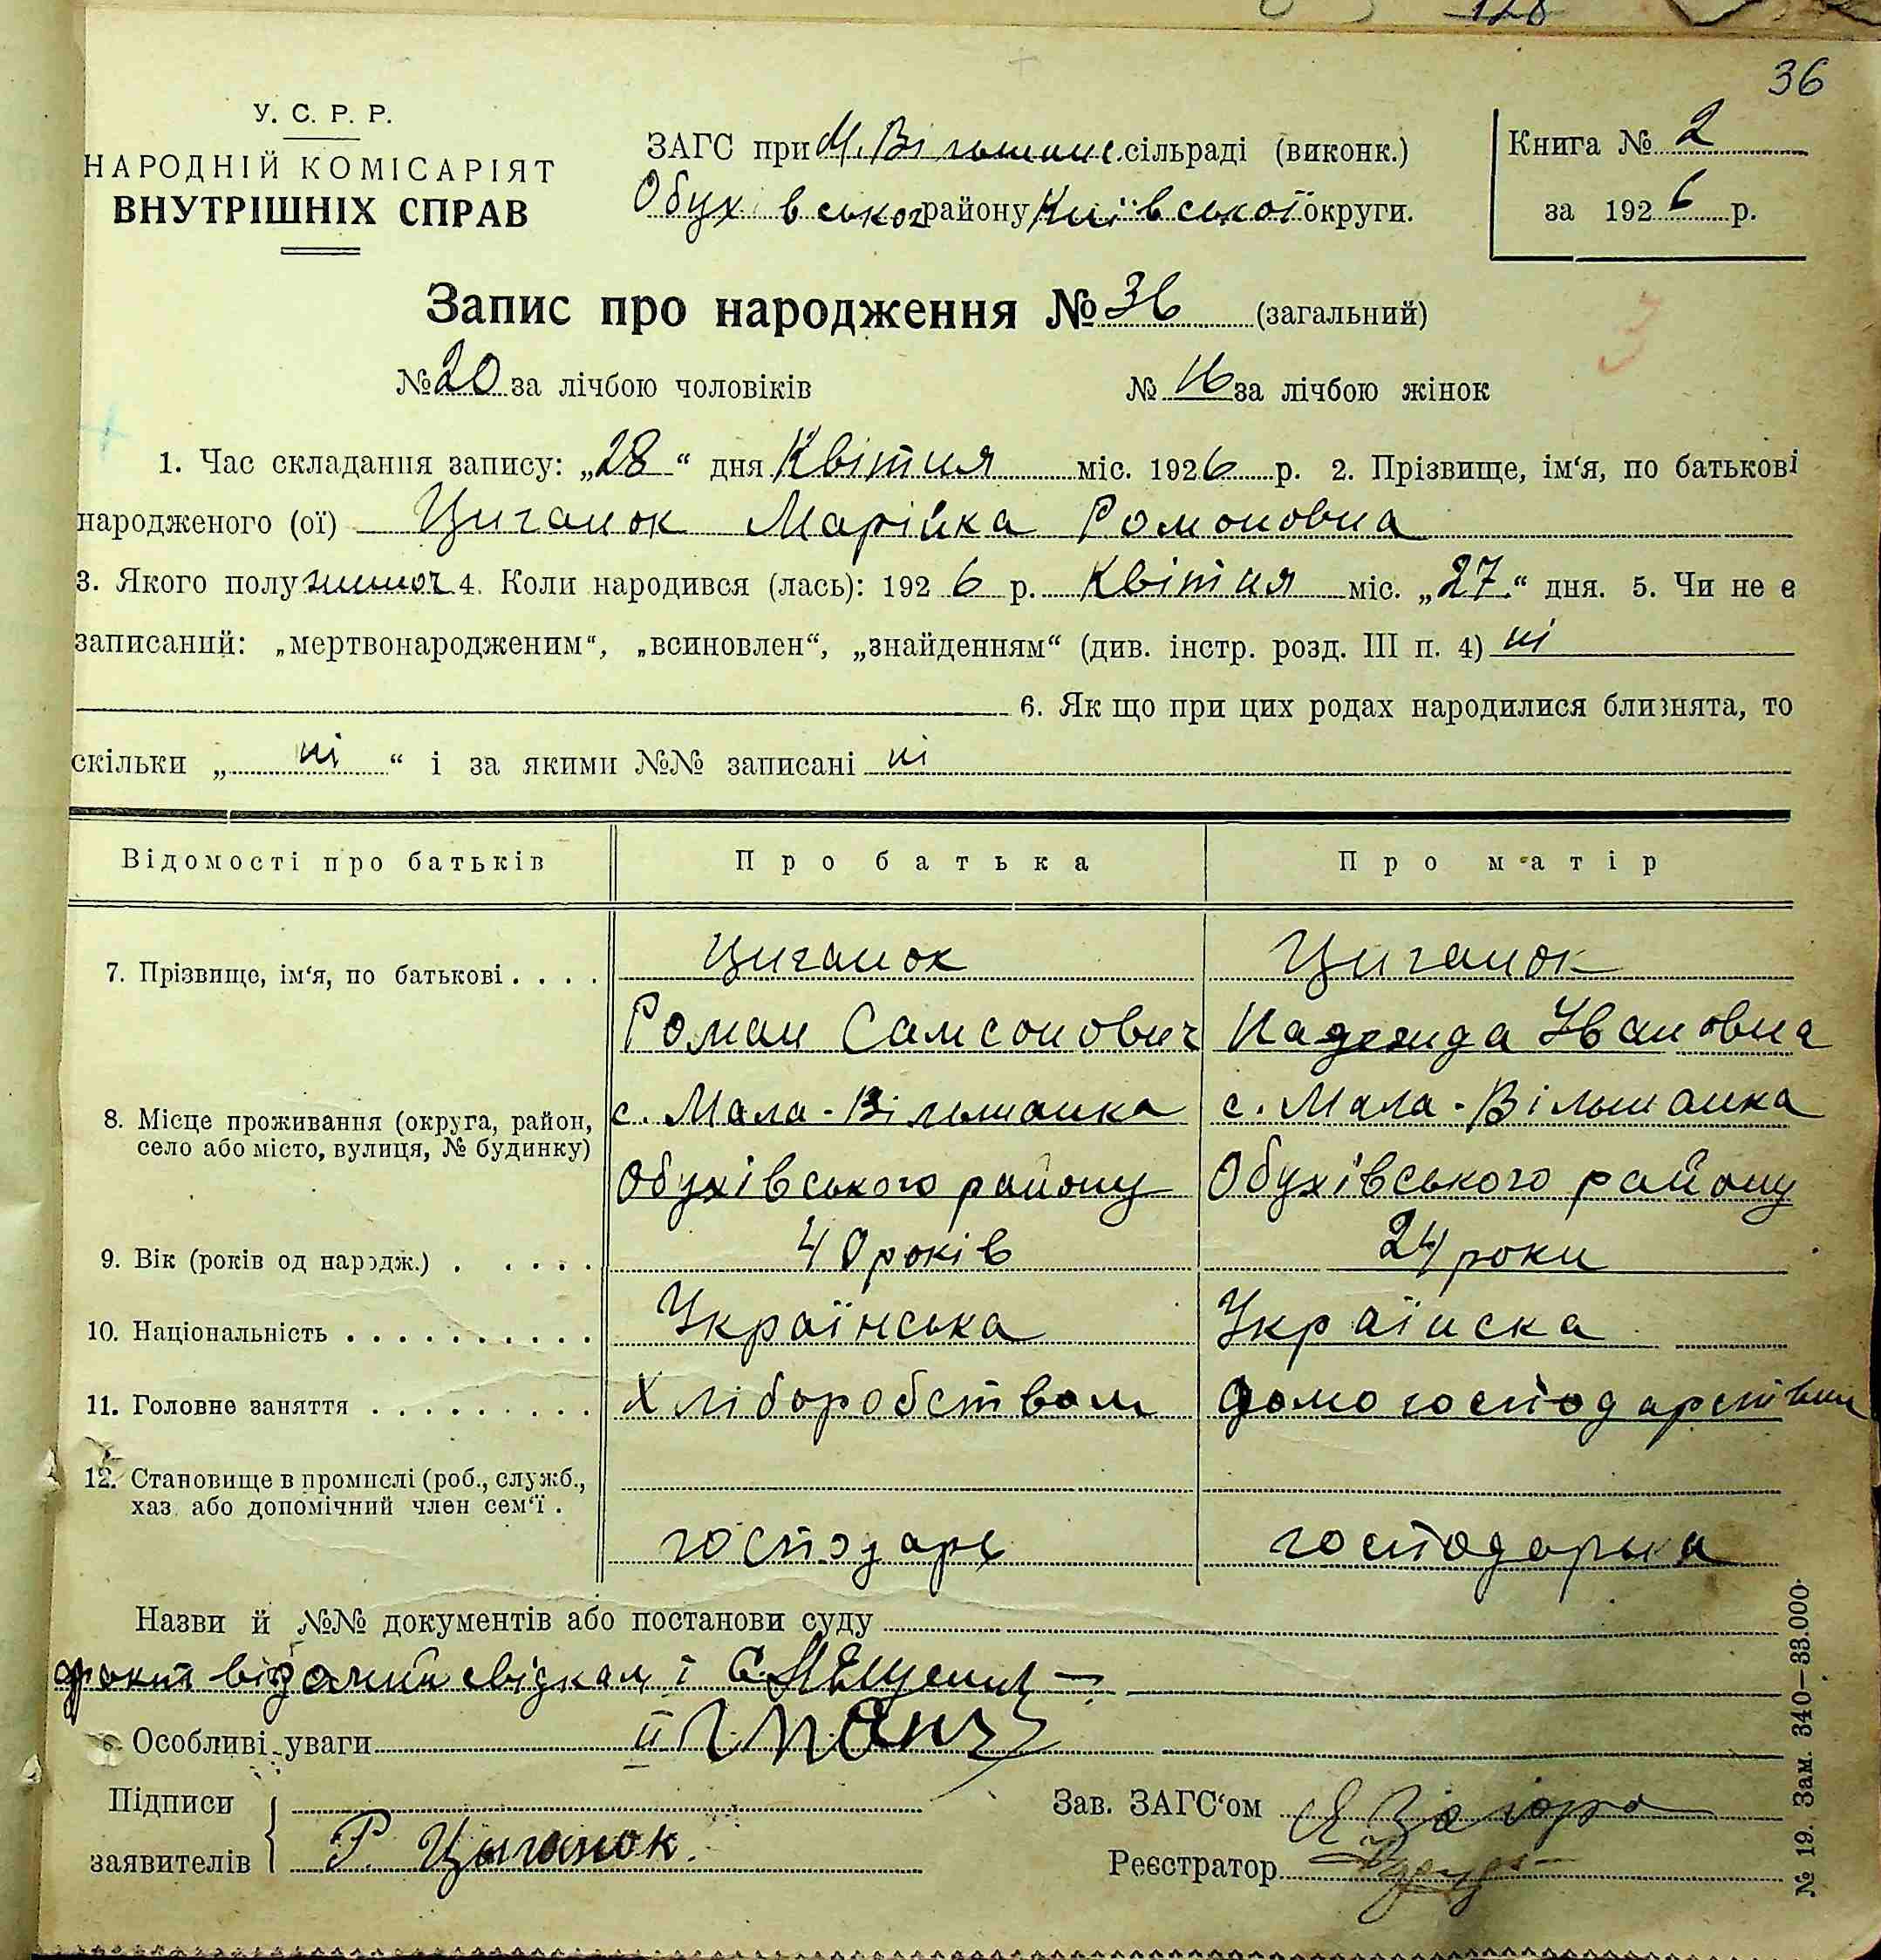 128
36
У. С. Р. Р.
НАРОДНІЙ КОМІСАРІЯТ
ВНУТРІШНІХ СПРАВ
ЗАГС при М. Вільшанс. сільраді (виконк.)
Обухівського району Київської округи.
Книга № 2
за 1926 р.
Запис про народження № 36 (загальний)
3
№ 20 за лічбою чоловіків № 16 за лічбою жінок
1. Час складання запису: „28“ дня Квітня міс. 1926 р. 2. Прізвище, ім‘я, по батькові
народженого (ої) Циганок Марійка Романовна
3. Якого полу жиноч 4. Коли народився (лась): 1926 р. Квітня міс. „27“ дня. 5. Чи не є
записаний: „мертвонародженим“, „всиновлен“, „знайденням“ (див. інстр. розд. III п. 4) ні
6. Як що при цих родах народилися близнята, то
скільки „ ні “ і за якими №№ записані ні
Відомості про батьків Про батька Про матір
7. Прізвище, ім‘я, по батькові . . . . Циганок Циганок
Роман Самсонович Надежда Івановна
8. Місце проживання (округа, район, село або місто, вулиця, № будинку) с. Мала-Вільшанка с. Мала-Вільшанка
Обухівського району Обухівського району
9. Вік (років од народж.) . . . . . 40 років 24 роки
10. Національність . . . . . . . . . . Українська Українска
11. Головне заняття . . . . . . . . . . Хліборобством домогосподарством
12. Становище в промислі (роб., служб.,
хаз. або допомічний член сем‘ї .
господарь господарька
Назви й №№ документів або постанови суду
відомий свідкам і
Особливі уваги
Підписи
заявителів Р. Цыганок.
Зав. ЗАГС‘ом
Реєстратор
№ 19. Зам. 340—33.000